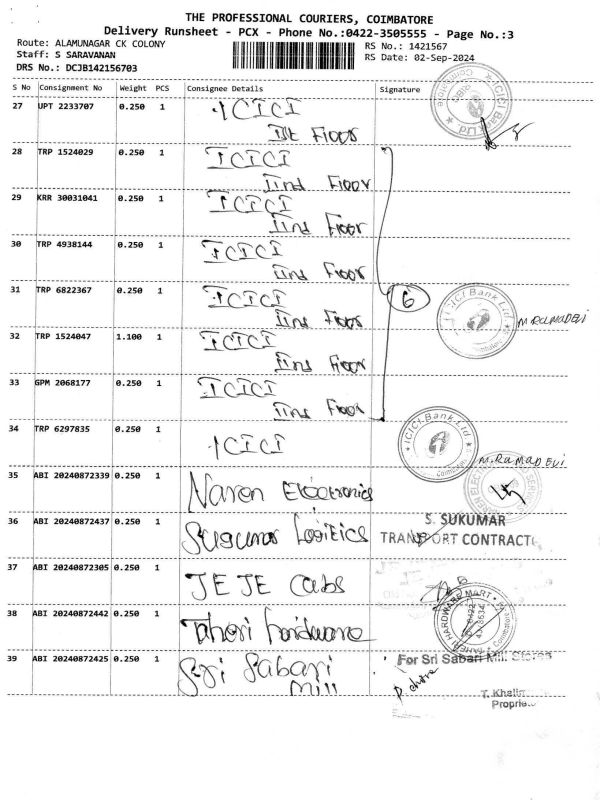 THE PROFESSIONAL COURIERS, COIMBATORE
Delivery Runsheet - PCX - Phone No.:0422-3505555 - Page No.:3
Route: ALAMUNAGAR CK COLONY
RS No.: 1421567
Staff: S SARAVANAN
RS Date: 02-Sep-2024
DRS No.: DCJB142156703
S No Consignment No Weight PCS Consignee Details Signature
27 UPT 2233707 0.250 1 ICICI
Ist Floor
28 TRP 1524029 0.250 1 ICICI
IInd Floor
29 KRR 30031041 0.250 1 ICICI
IInd Floor
30 TRP 4938144 0.250 1 ICICI
IInd Floor
31 TRP 6822367 0.250 1 ICICI
IInd Floor
6
ICICI Bank Ltd.
Coimbatore
M RAMADEVI
32 TRP 1524047 1.100 1 ICICI
IInd Floor
33 GPM 2068177 0.250 1 ICICI
IInd Floor
34 TRP 6297835 0.250 1 ICICI
ICICI Bank Ltd.
Coimbatore
M. RAMADEVI
35 ABI 20240872339 0.250 1 Naren Electronics
36 ABI 20240872437 0.250 1 Sugumar Logitics
S. SUKUMAR
TRANSPORT CONTRACT
37 ABI 20240872305 0.250 1 JEJE Cabs
38 ABI 20240872442 0.250 1 Taheri hardware
HARDWARE MART
39 ABI 20240872425 0.250 1 Sri Sabari
Mill
For Sri Sabari Mill Stores
T. Khalin
Proprie